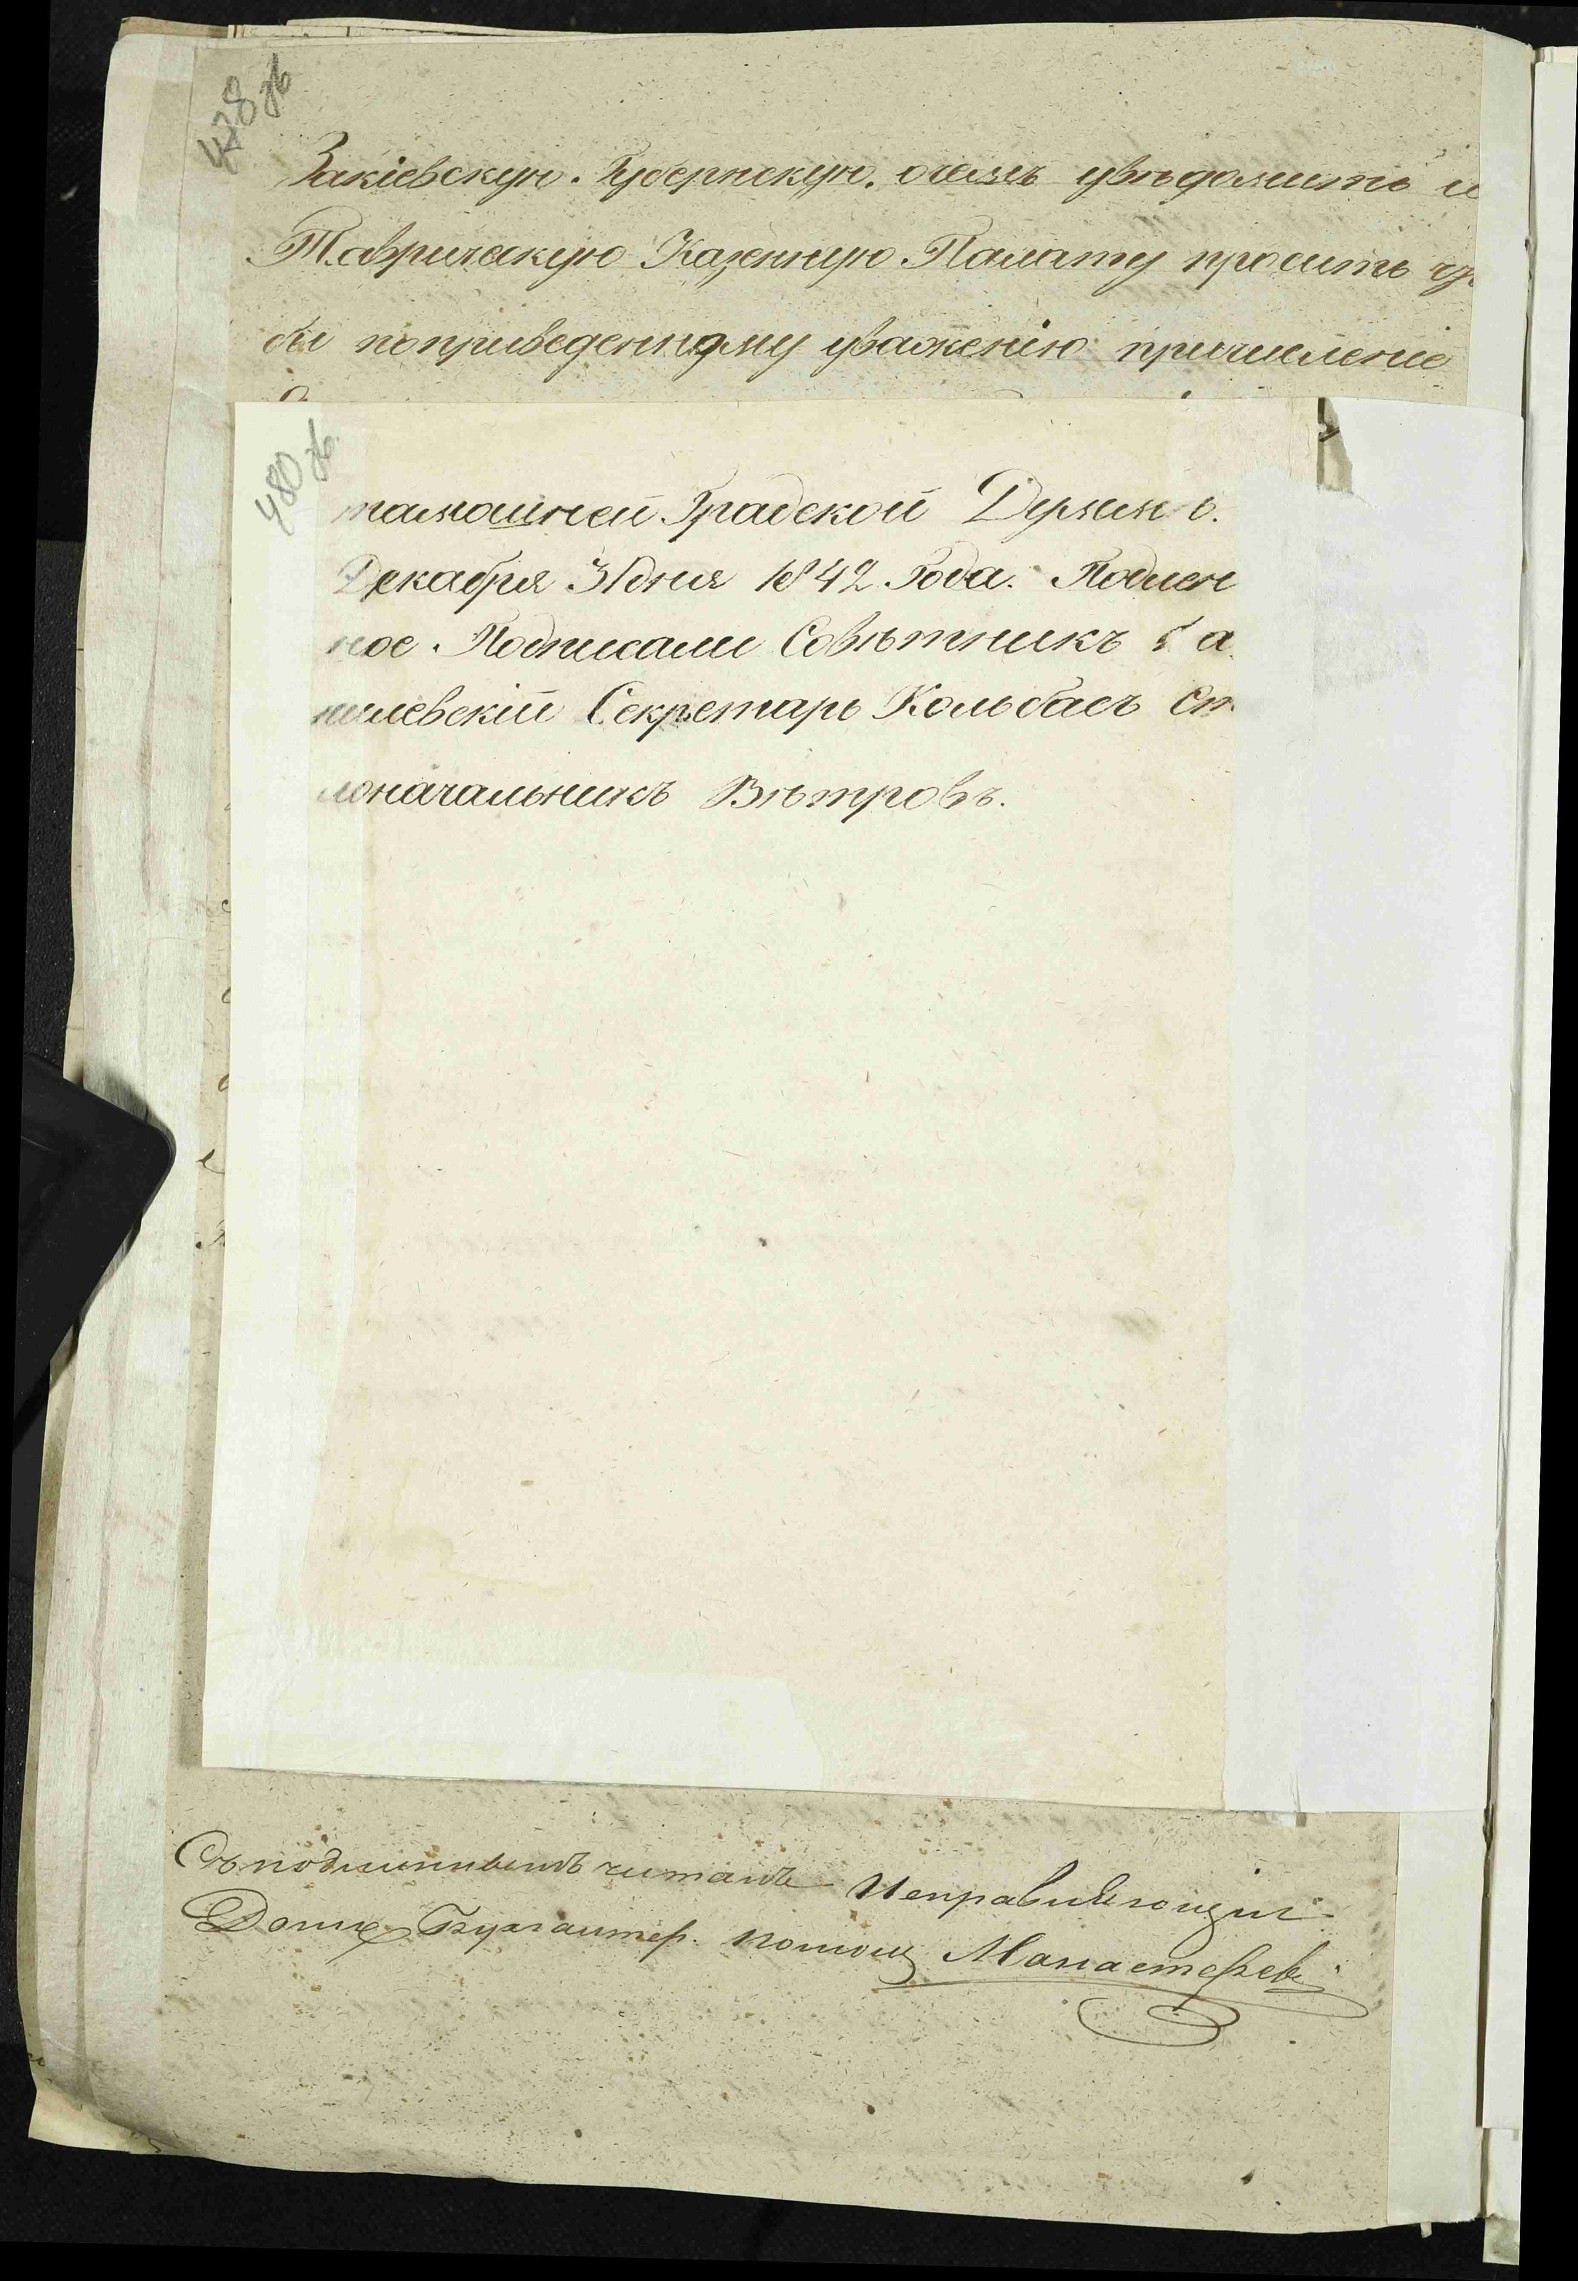 478 об
Закіевскую. Губернскую. о чемъ увѣдомить и
Таврическую Казенную Палату просить что
бы поприведенному уваженію причисленіе
480 об.
тамошней Градской Думы
Декабря 31 дня 1842 Года. Подлен
ное. Подписали Совѣтникъ
нилевскій Секретарь Кольбасъ Ст
лоначальникъ Вѣтровъ.
Съ подлиннымъ читалъ Исправляющій
Долж Бухгалтер. помощ Манастырев